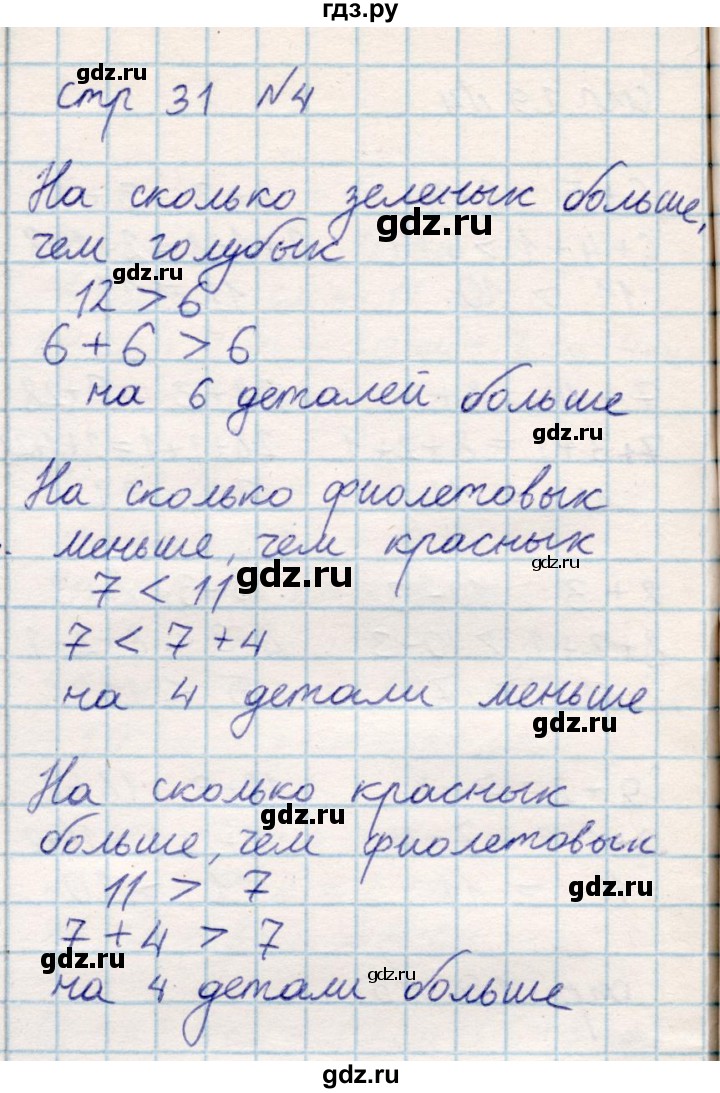 гдз.ру
gdz.ru
стр 31 №4
На сколько зеленых больше,
gdz.ru
чем голубых
gdz.ru
12 > 6
6 + 6 > 6
на 6 деталей больше
gdz.ru
На сколько фиолетовых
меньше, чем красных
gdz.ru
gdz.ru
7 < 11
7 < 7 + 4
на 4 детали меньше
gdz.ru
На сколько красных
gdz.ru
больше, чем фиолетовых
11 > 7
gdz.ru
7 + 4 > 7
gdz.ru
gdz.ru
на 4 детали больше
gdz.ru